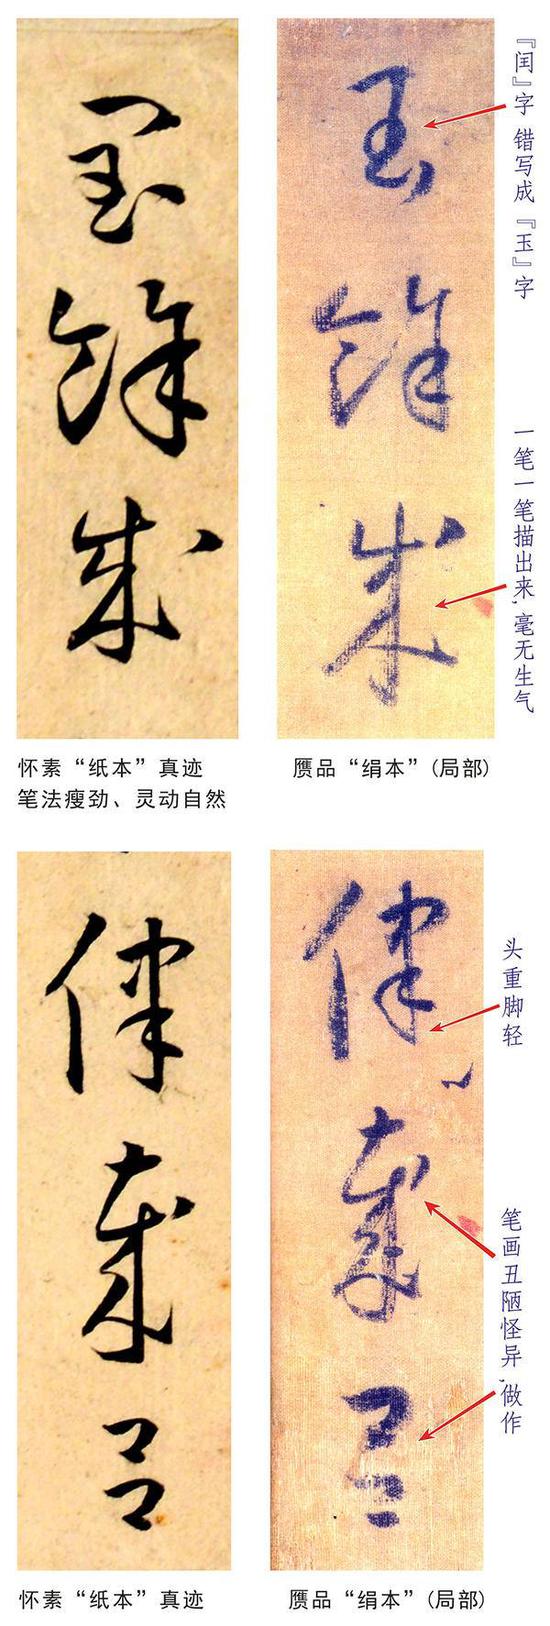 閏餘成
玉餘成
『闰』字 错写成『玉』字
一笔一笔描出来,毫无生气
怀素“纸本”真迹
笔法瘦劲、灵动自然
赝品“绢本”(局部)
律歲吕
律歲吕
头重脚轻
笔画丑陋怪异,做作
怀素“纸本”真迹
赝品“绢本”(局部)